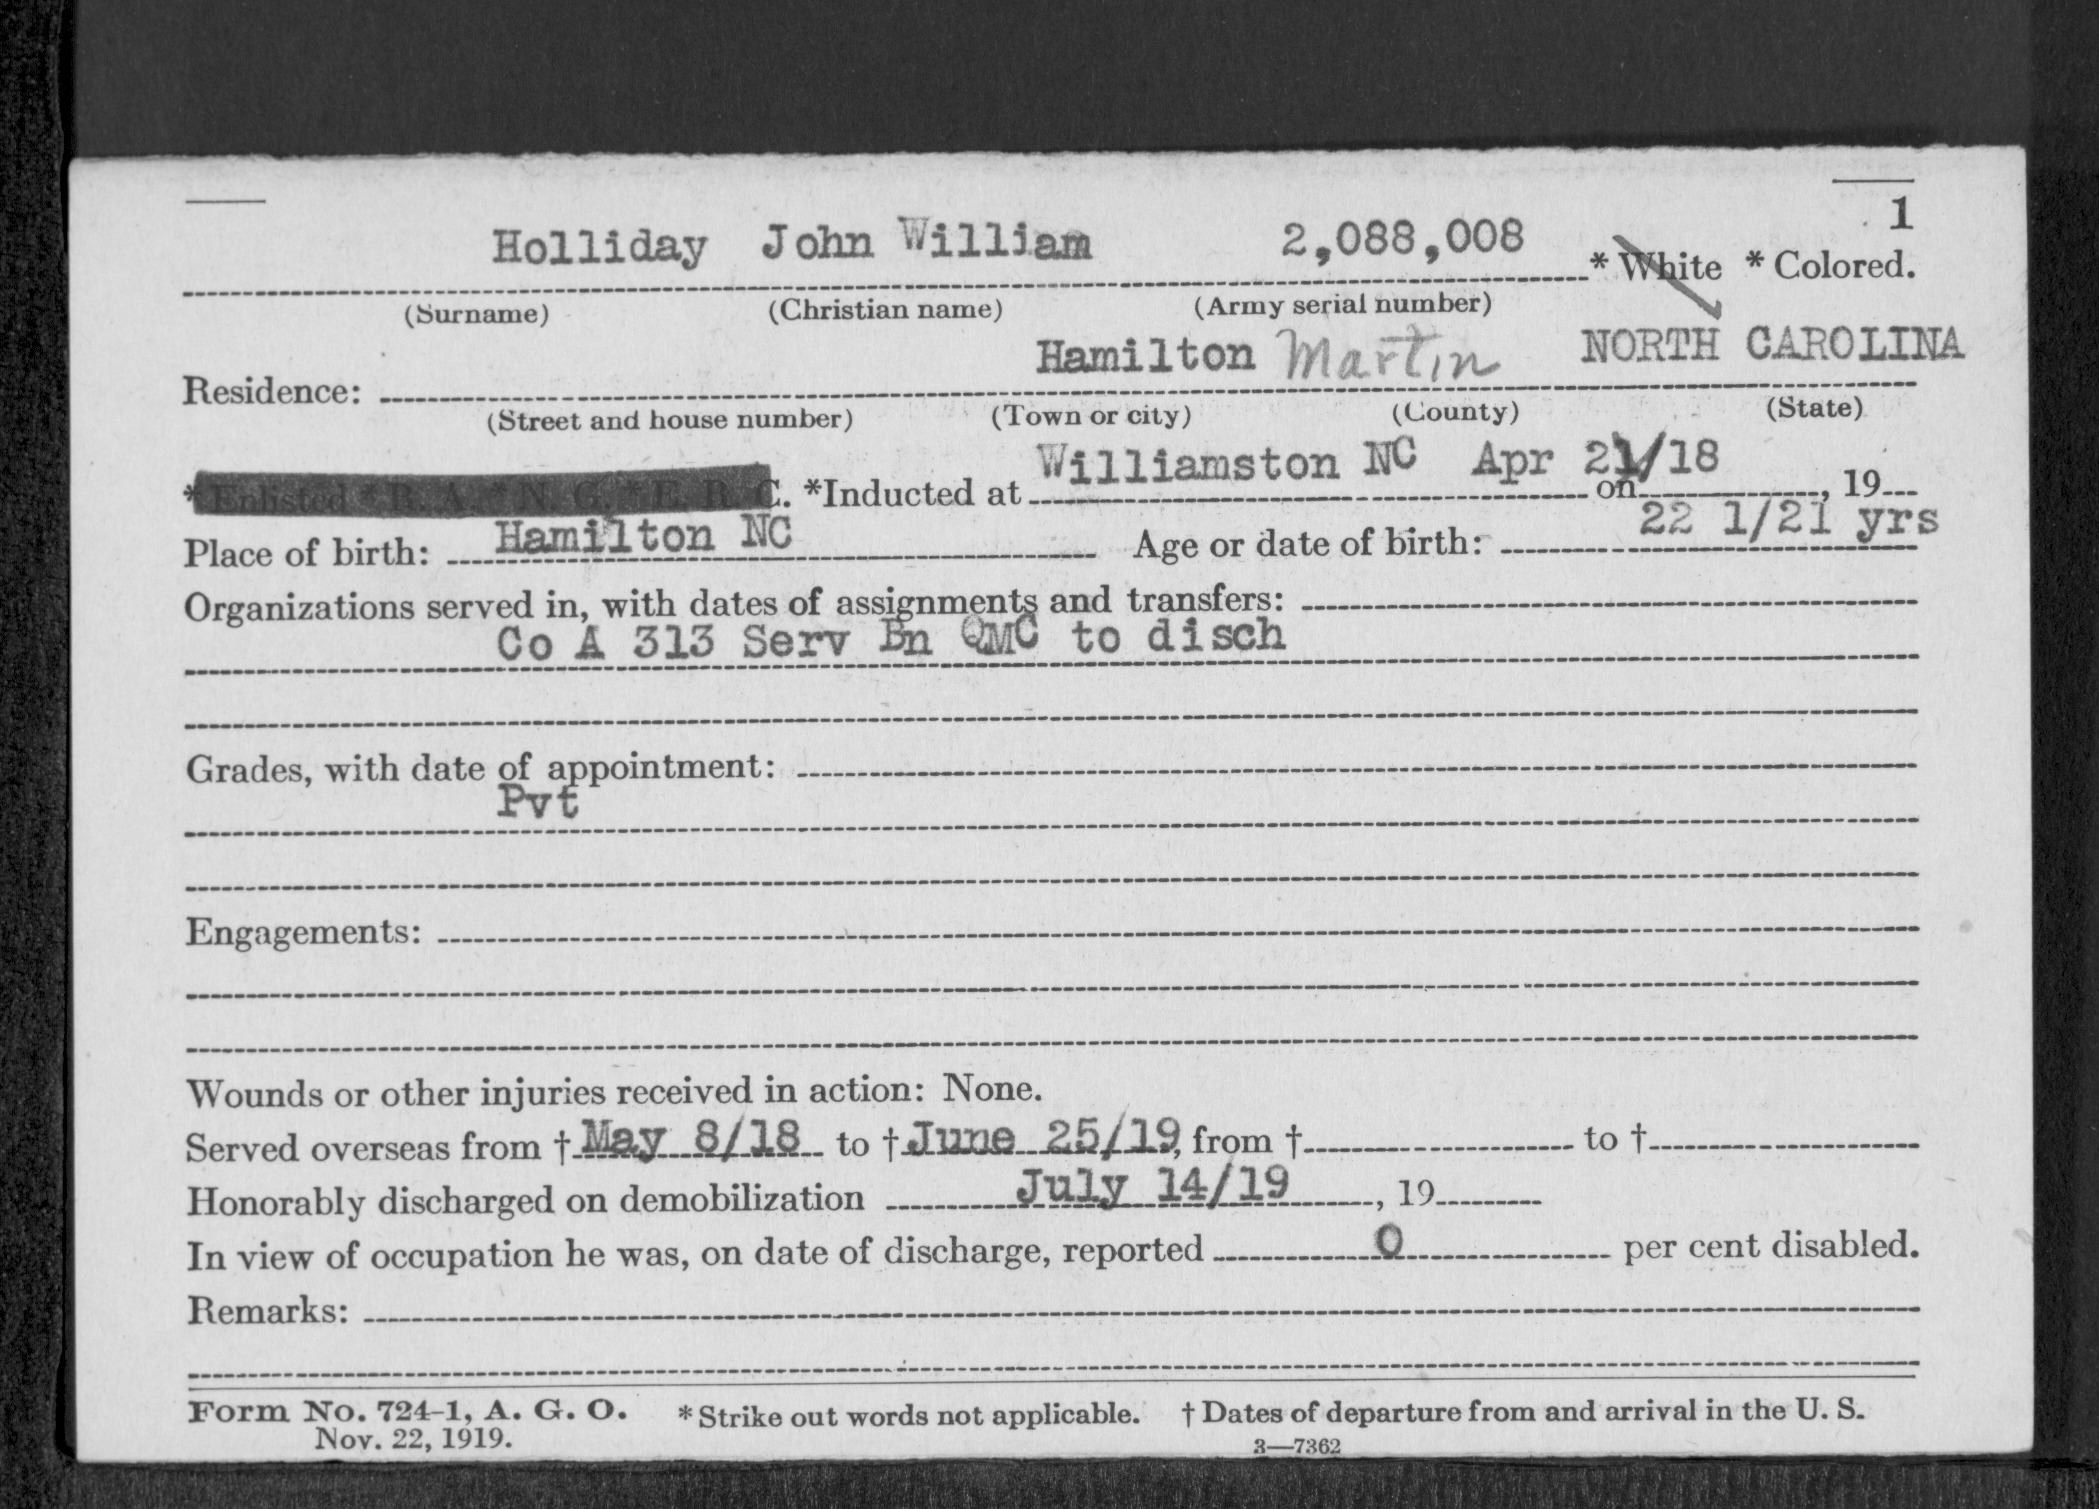 1
Holliday John William 2,088,008 * White * Colored.
(Surname) (Christian name) (Army serial number)
Residence: Hamilton Martin NORTH CAROLINA
(Street and house number) (Town or city) (County) (State)
* Enlisted * R. A. * N. G. * E. R. C. *Inducted at Williamston NC on Apr 21/18, 19
Place of birth: Hamilton NC Age or date of birth: 22 1/21 yrs
Organizations served in, with dates of assignments and transfers:
Co A 313 Serv Bn QMC to disch
Grades, with date of appointment:
Pvt
Engagements:
Wounds or other injuries received in action: None.
Served overseas from † May 8/18 to † June 25/19, from † to †
Honorably discharged on demobilization July 14/19, 19
In view of occupation he was, on date of discharge, reported 0 per cent disabled.
Remarks:
Form No. 724-1, A. G. O. * Strike out words not applicable. † Dates of departure from and arrival in the U. S.
Nov. 22, 1919. 3—7362